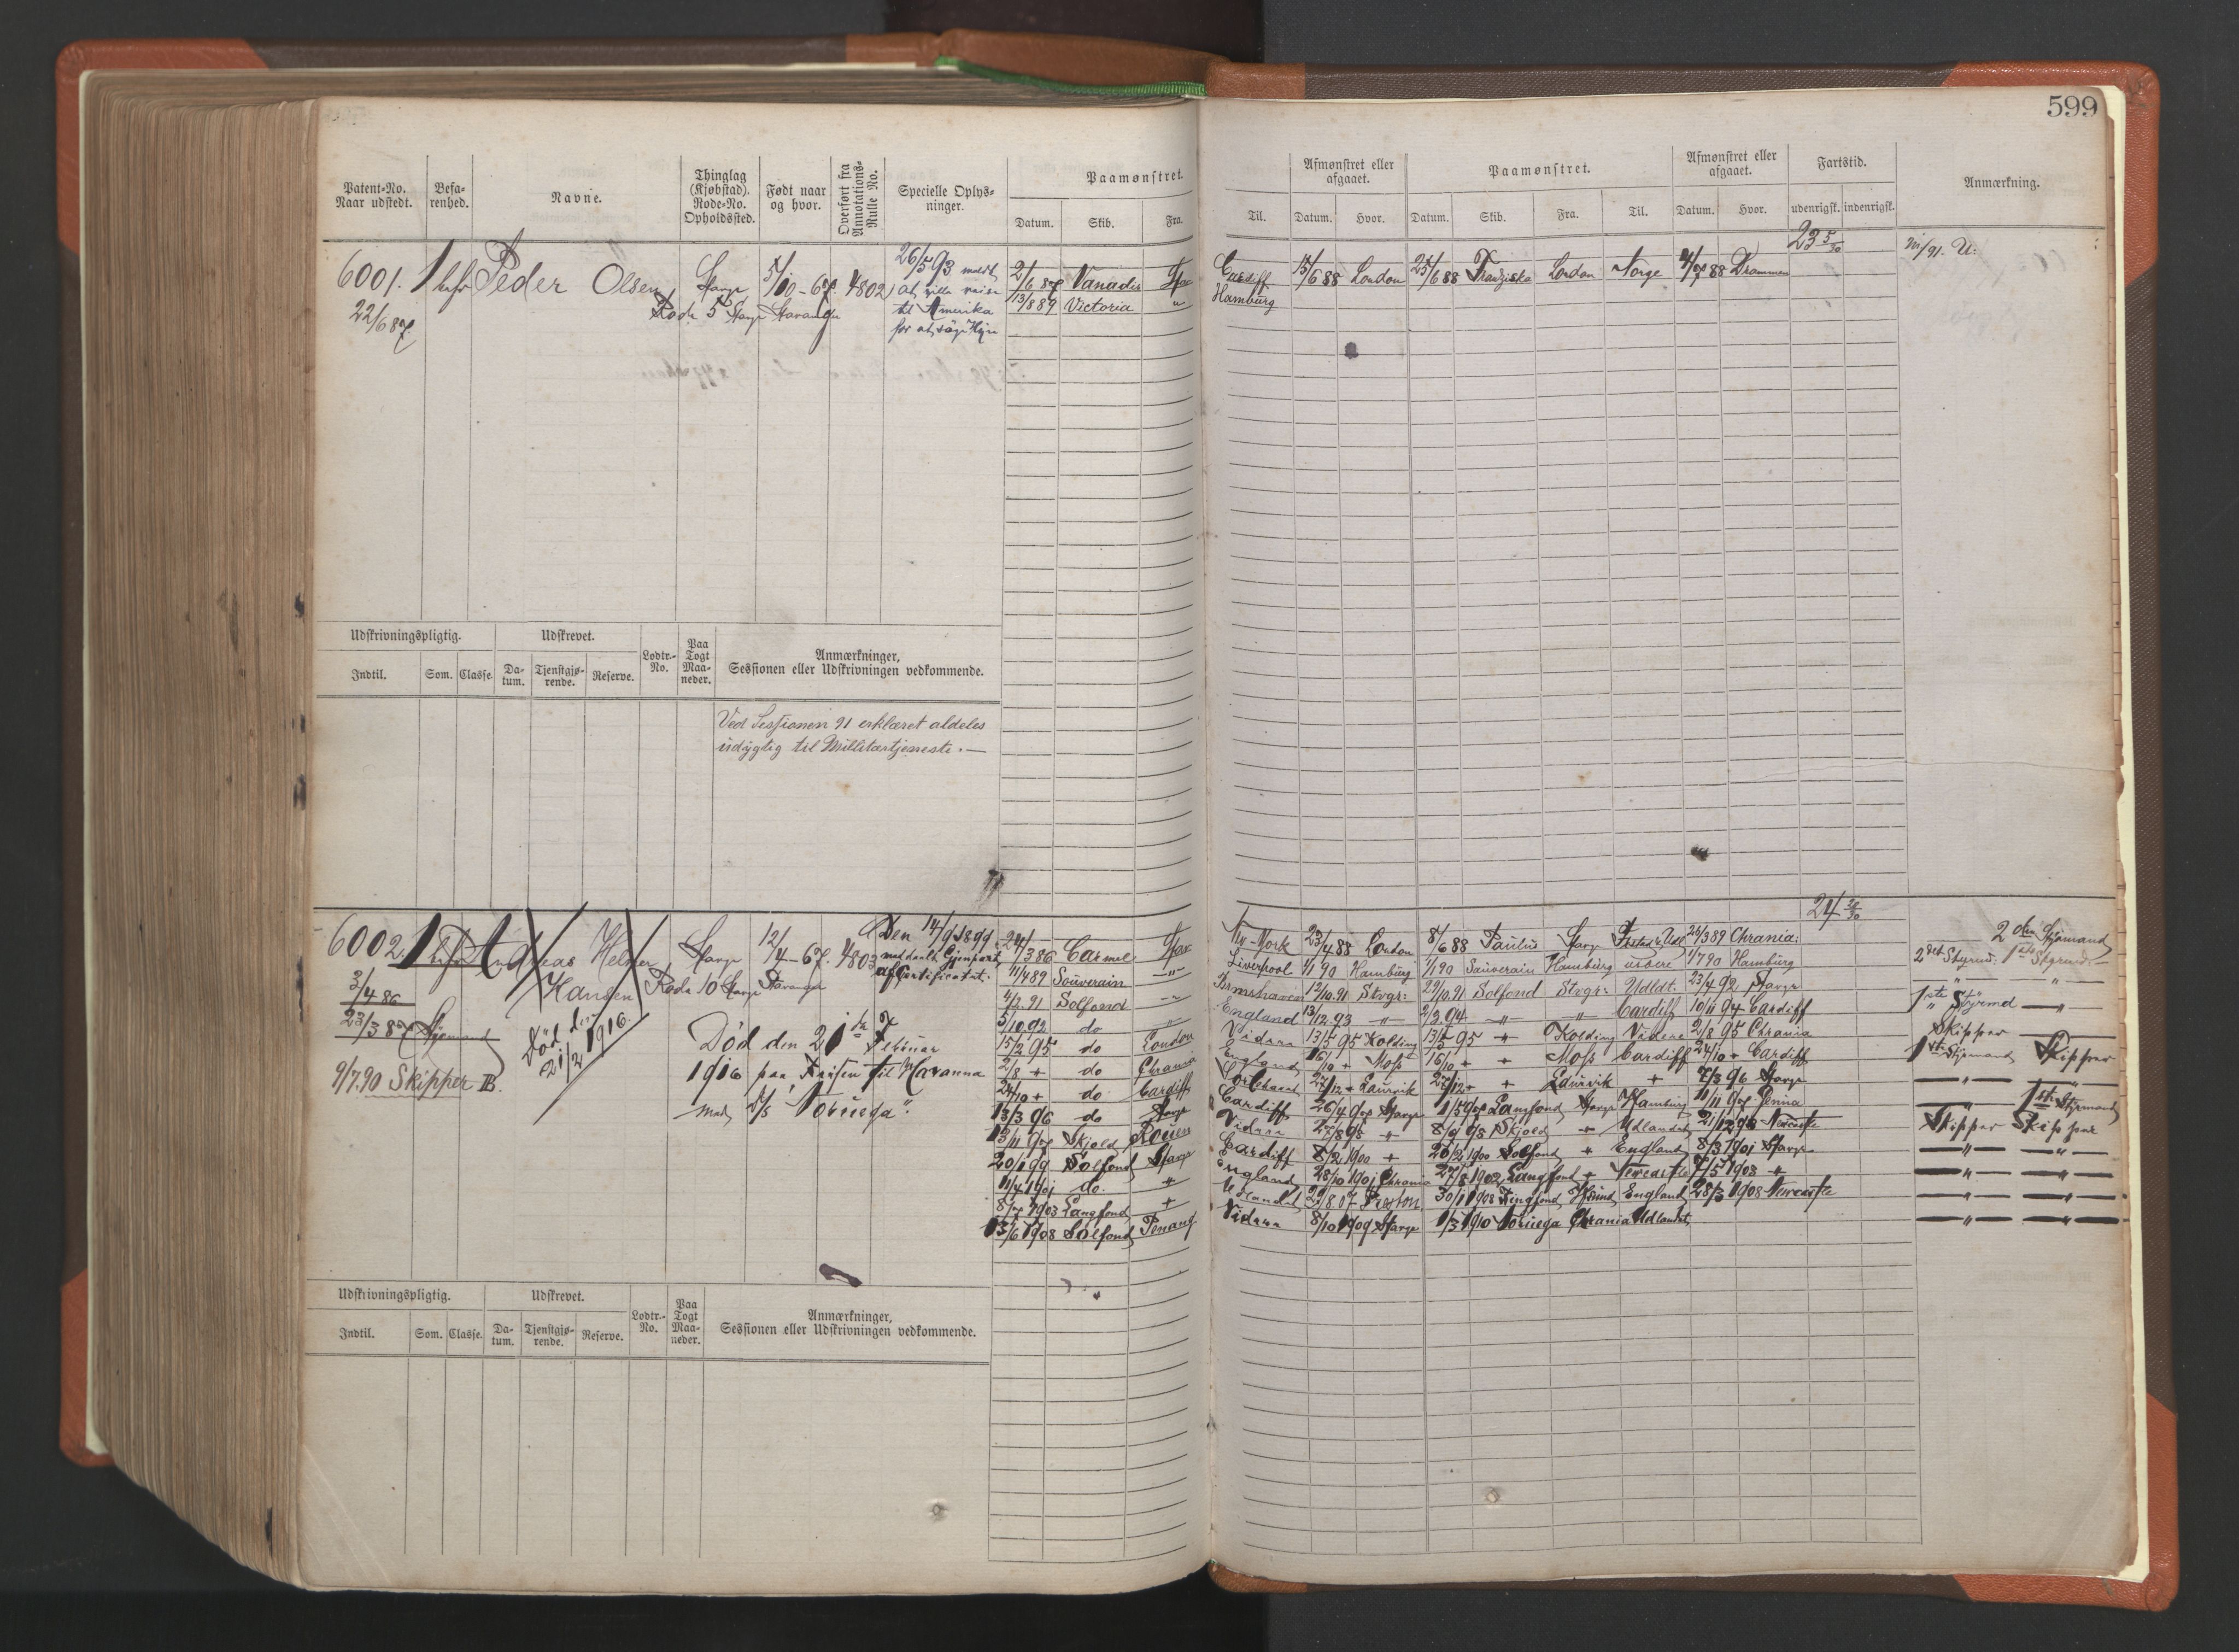 599
Patent-No.
Naar udstedt.
Befa-
renhed.
Navne.
Thinglag
(Kjøbstad).
Rode-No.
Opholdssted.
Født naar
og hvor.
Overført fra
Annotations-
Rulle No.
Specielle Oplys-
ninger.
Paamønstret.
Datum. Skib. Fra.
Til.
Afmønstret eller
afgaaet.
Datum. Hvor.
Paamønstret.
Datum. Skib. Fra. Til.
Afmønstret eller
afgaaet.
Datum. Hvor.
Fartstid.
udenrigsk. indenrigsk.
Anmærkning.
6001. 1 bef. Peder Olsen Stavgr 5/10-67. 4802
22/6 87 Rode 5 Stavgr Stavanger
26/5 93 meldt
at ville reise
til Amerika
for at søge Hyre
2/6 87 Vanadis
13/8 89 Victoria "
Cardiff 15/6 88 London 25/6 88 Franziska London Norge 4/7 88 Drammen
Hamburg
23 5/30
/91. U:
Udskrivningspligtig. Udskrevet. Lodtr.-
No. Paa
Togt
Maa-
neder. Anmærkninger,
Sessionen eller Udskrivningen vedkommende.
Indtil. Som. Classe. Da-
tum. Tjenstgjø-
rende. Reserve.
Ved Sessionen 91 erklæret aldeles
udygtig til Millitærtjeneste. —
6002. 1 bef. Andreas Helner Stavgr 12/4-67. 4803
Hansen Rode 10 Stavgr Stavanger
3/4 86
23/3 87 Styrmand
9/7 90 Skipper B.
Død den
21/2 1916.
Den 14/9 1899
meddeelt Gjenpart
af Certificatet.
Død den 21de Februar
1916 paa Reisen til Havanna
med D/S "Noruega".
24/3 86 Carmel
11/4 89 Souverain —"—
4/2 91 Solfond —"—
5/10 92 do "
15/2 95 do London
2/8 + do Chrania
24/10 + do Cardiff
13/3 96 do Stavgr
13/11 97 Skjold Rouen
20/1 99 Solfond Stavgr
11/4 1901 do. +
8/7 1903 Langfond +
13/6 1908 Solfond Penang
24 28/30
New-York 23/4 88 London 8/6 88 Paulus Stavgr 26/3 89 Chrania:
Liverpool 1/1 90 Hamburg 1/1 90 Souverain Hamburg videre 1/7 90 Hamburg
12/10 91 Stvgr: 29/10 91 Solfond Stvgr: Udldt. 23/4 92 Stavgr
England 13/12 93 —"— 2/3 94 —"— —"— Cardiff 10/11 94 Cardiff
Videre 13/5 95 Kolding 13/5 95 + Kolding Videre 2/8 95 Chrania
England 16/10 + Moss 16/10 + + Moss Cardiff 24/10 + Cardiff
27/12 + Laurvik 27/12 + + Laurvik + 7/3 96 Stavgr
Cardiff 26/4 97 Stavgr 1/5 97 Langfond Stavgr Hamburg 11/11 97
Videre 27/8 98 + 8/9 98 Skjold + Udlandet 21/12 98 Newcastle
Cardiff 8/2 1900 + 26/2 1900 Solfond + England 8/3 1901 Stavgr
England 28/10 1901 Chrania 27/8 1902 Langfond + Newcastle 7/5 1903 +
Udlandet 22/8 07 30/1 1908 England 28/3 1908 Newcastle
Videre 8/10 1909 Stavgr 1/3 1910 Noruega Chrania Udlandet
2den Styrmand
2det Styrmd: 1ste Styrmd:
" —"—
1ste Styrmd —"—
Skipper
1ste Styrmand Skipper
—"— —"—
—"— 1ste Styrmand
Skipper Skipper
—"— —"—
—"— —"—
—"— —"—
—"— —"—
Udskrivningspligtig. Udskrevet. Lodtr.-
No. Paa
Togt
Maa-
neder. Anmærkninger,
Sessionen eller Udskrivningen vedkommende.
Indtil. Som. Classe. Da-
tum. Tjenstgjø-
rende. Reserve.